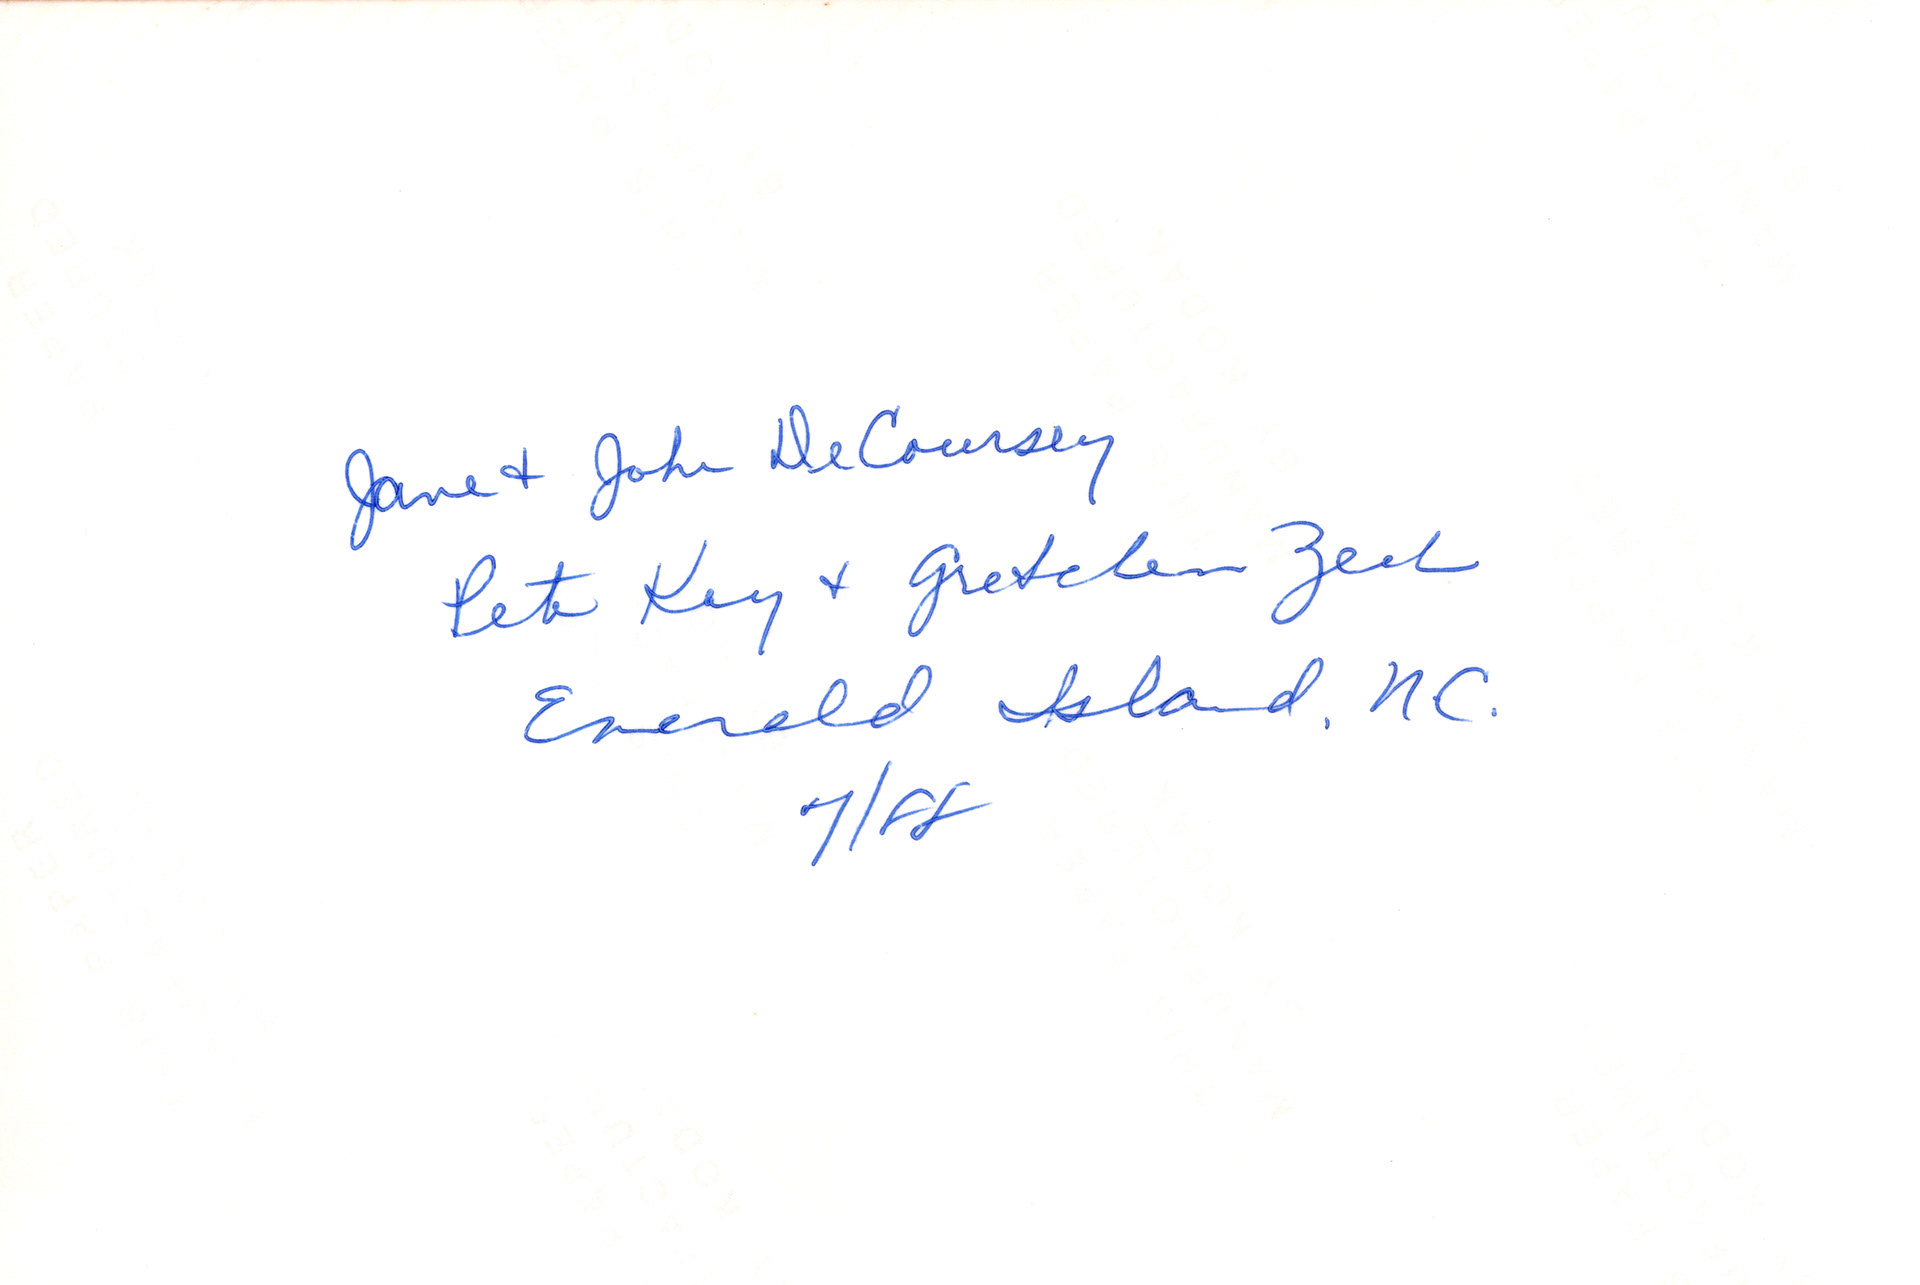 Jane + John DeCoursey
Pete Kay + Gretchen Zech
Emerald Island, NC.
7/88